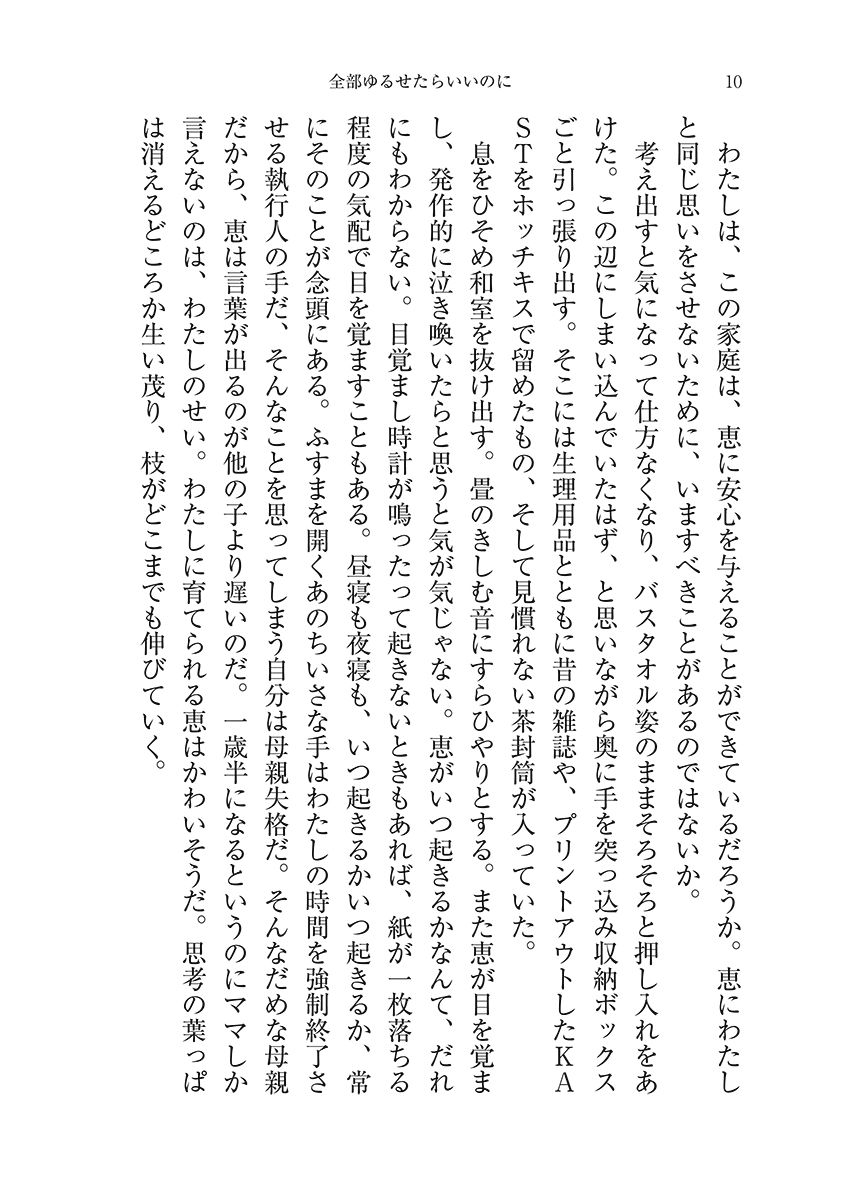 全部ゆるせたらいいのに
10
　わたしは、この家庭は、恵に安心を与えることができているだろうか。恵にわたし
と同じ思いをさせないために、いますべきことがあるのではないか。
　考え出すと気になって仕方なくなり、バスタオル姿のままそろそろと押し入れをあ
けた。この辺にしまい込んでいたはず、と思いながら奥に手を突っ込み収納ボックス
ごと引っ張り出す。そこには生理用品とともに昔の雑誌や、プリントアウトしたＫＡ
ＳＴをホッチキスで留めたもの、そして見慣れない茶封筒が入っていた。
　息をひそめ和室を抜け出す。畳のきしむ音にすらひやりとする。また恵が目を覚ま
し、発作的に泣き喚いたらと思うと気が気じゃない。恵がいつ起きるかなんて、だれ
にもわからない。目覚まし時計が鳴ったって起きないときもあれば、紙が一枚落ちる
程度の気配で目を覚ますこともある。昼寝も夜寝も、いつ起きるかいつ起きるか、常
にそのことが念頭にある。ふすまを開くあのちいさな手はわたしの時間を強制終了さ
せる執行人の手だ、そんなことを思ってしまう自分は母親失格だ。そんなだめな母親
だから、恵は言葉が出るのが他の子より遅いのだ。一歳半になるというのにママしか
言えないのは、わたしのせい。わたしに育てられる恵はかわいそうだ。思考の葉っぱ
は消えるどころか生い茂り、枝がどこまでも伸びていく。